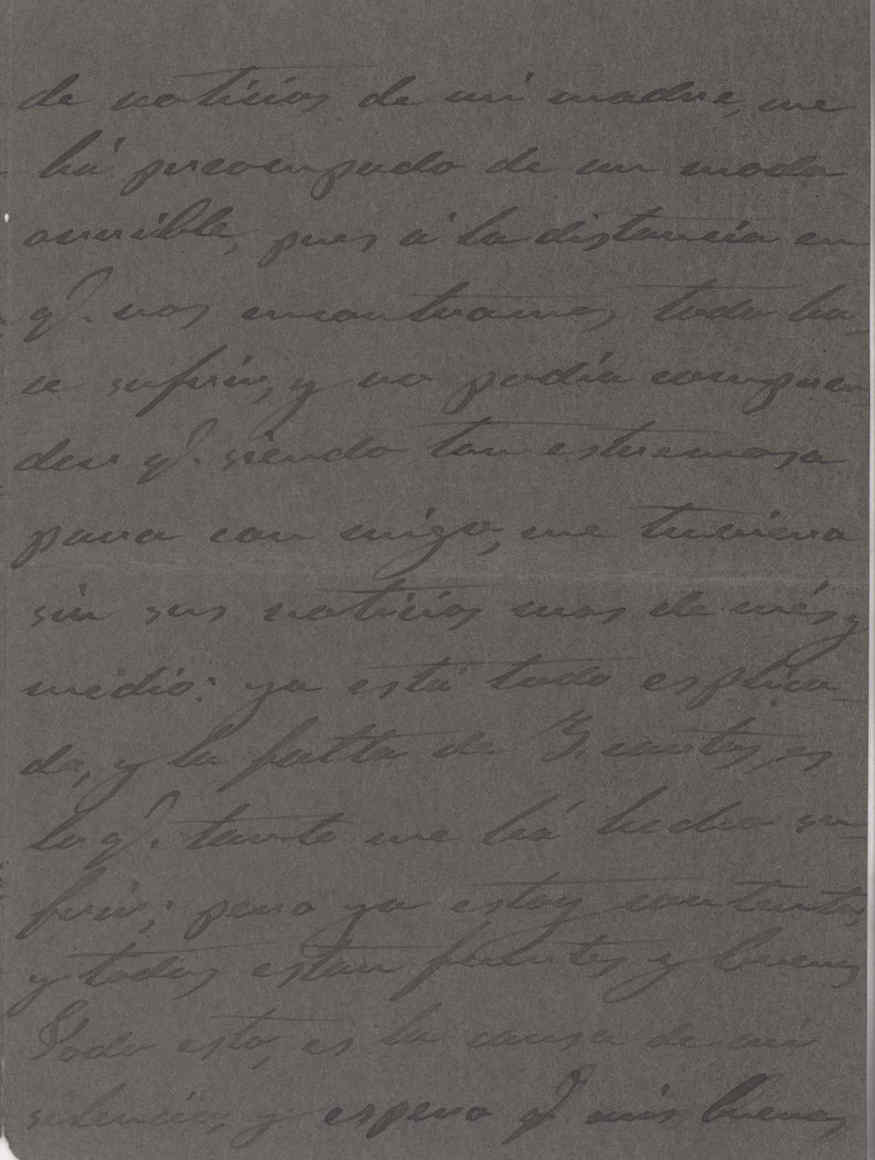 de noticias de mi madre, me
há preocupado de un modo
orrible, pues á la distancia en
q.e nos encontramos, todo ha-
ce sufrir, y no podía compren-
der q.e siendo tan estremosa
para con migo, me tubiera
sin sus noticias mas de més y
medio: ya está todo esplica-
do, y la falta de 3. cartas, es
lo q.e tanto me há hecho su-
frir; pero ya estoy contenta,
y todos estan fuertes y buenos
Todo esto, es la causa de mi
silencio, y espero q.e mis buenos